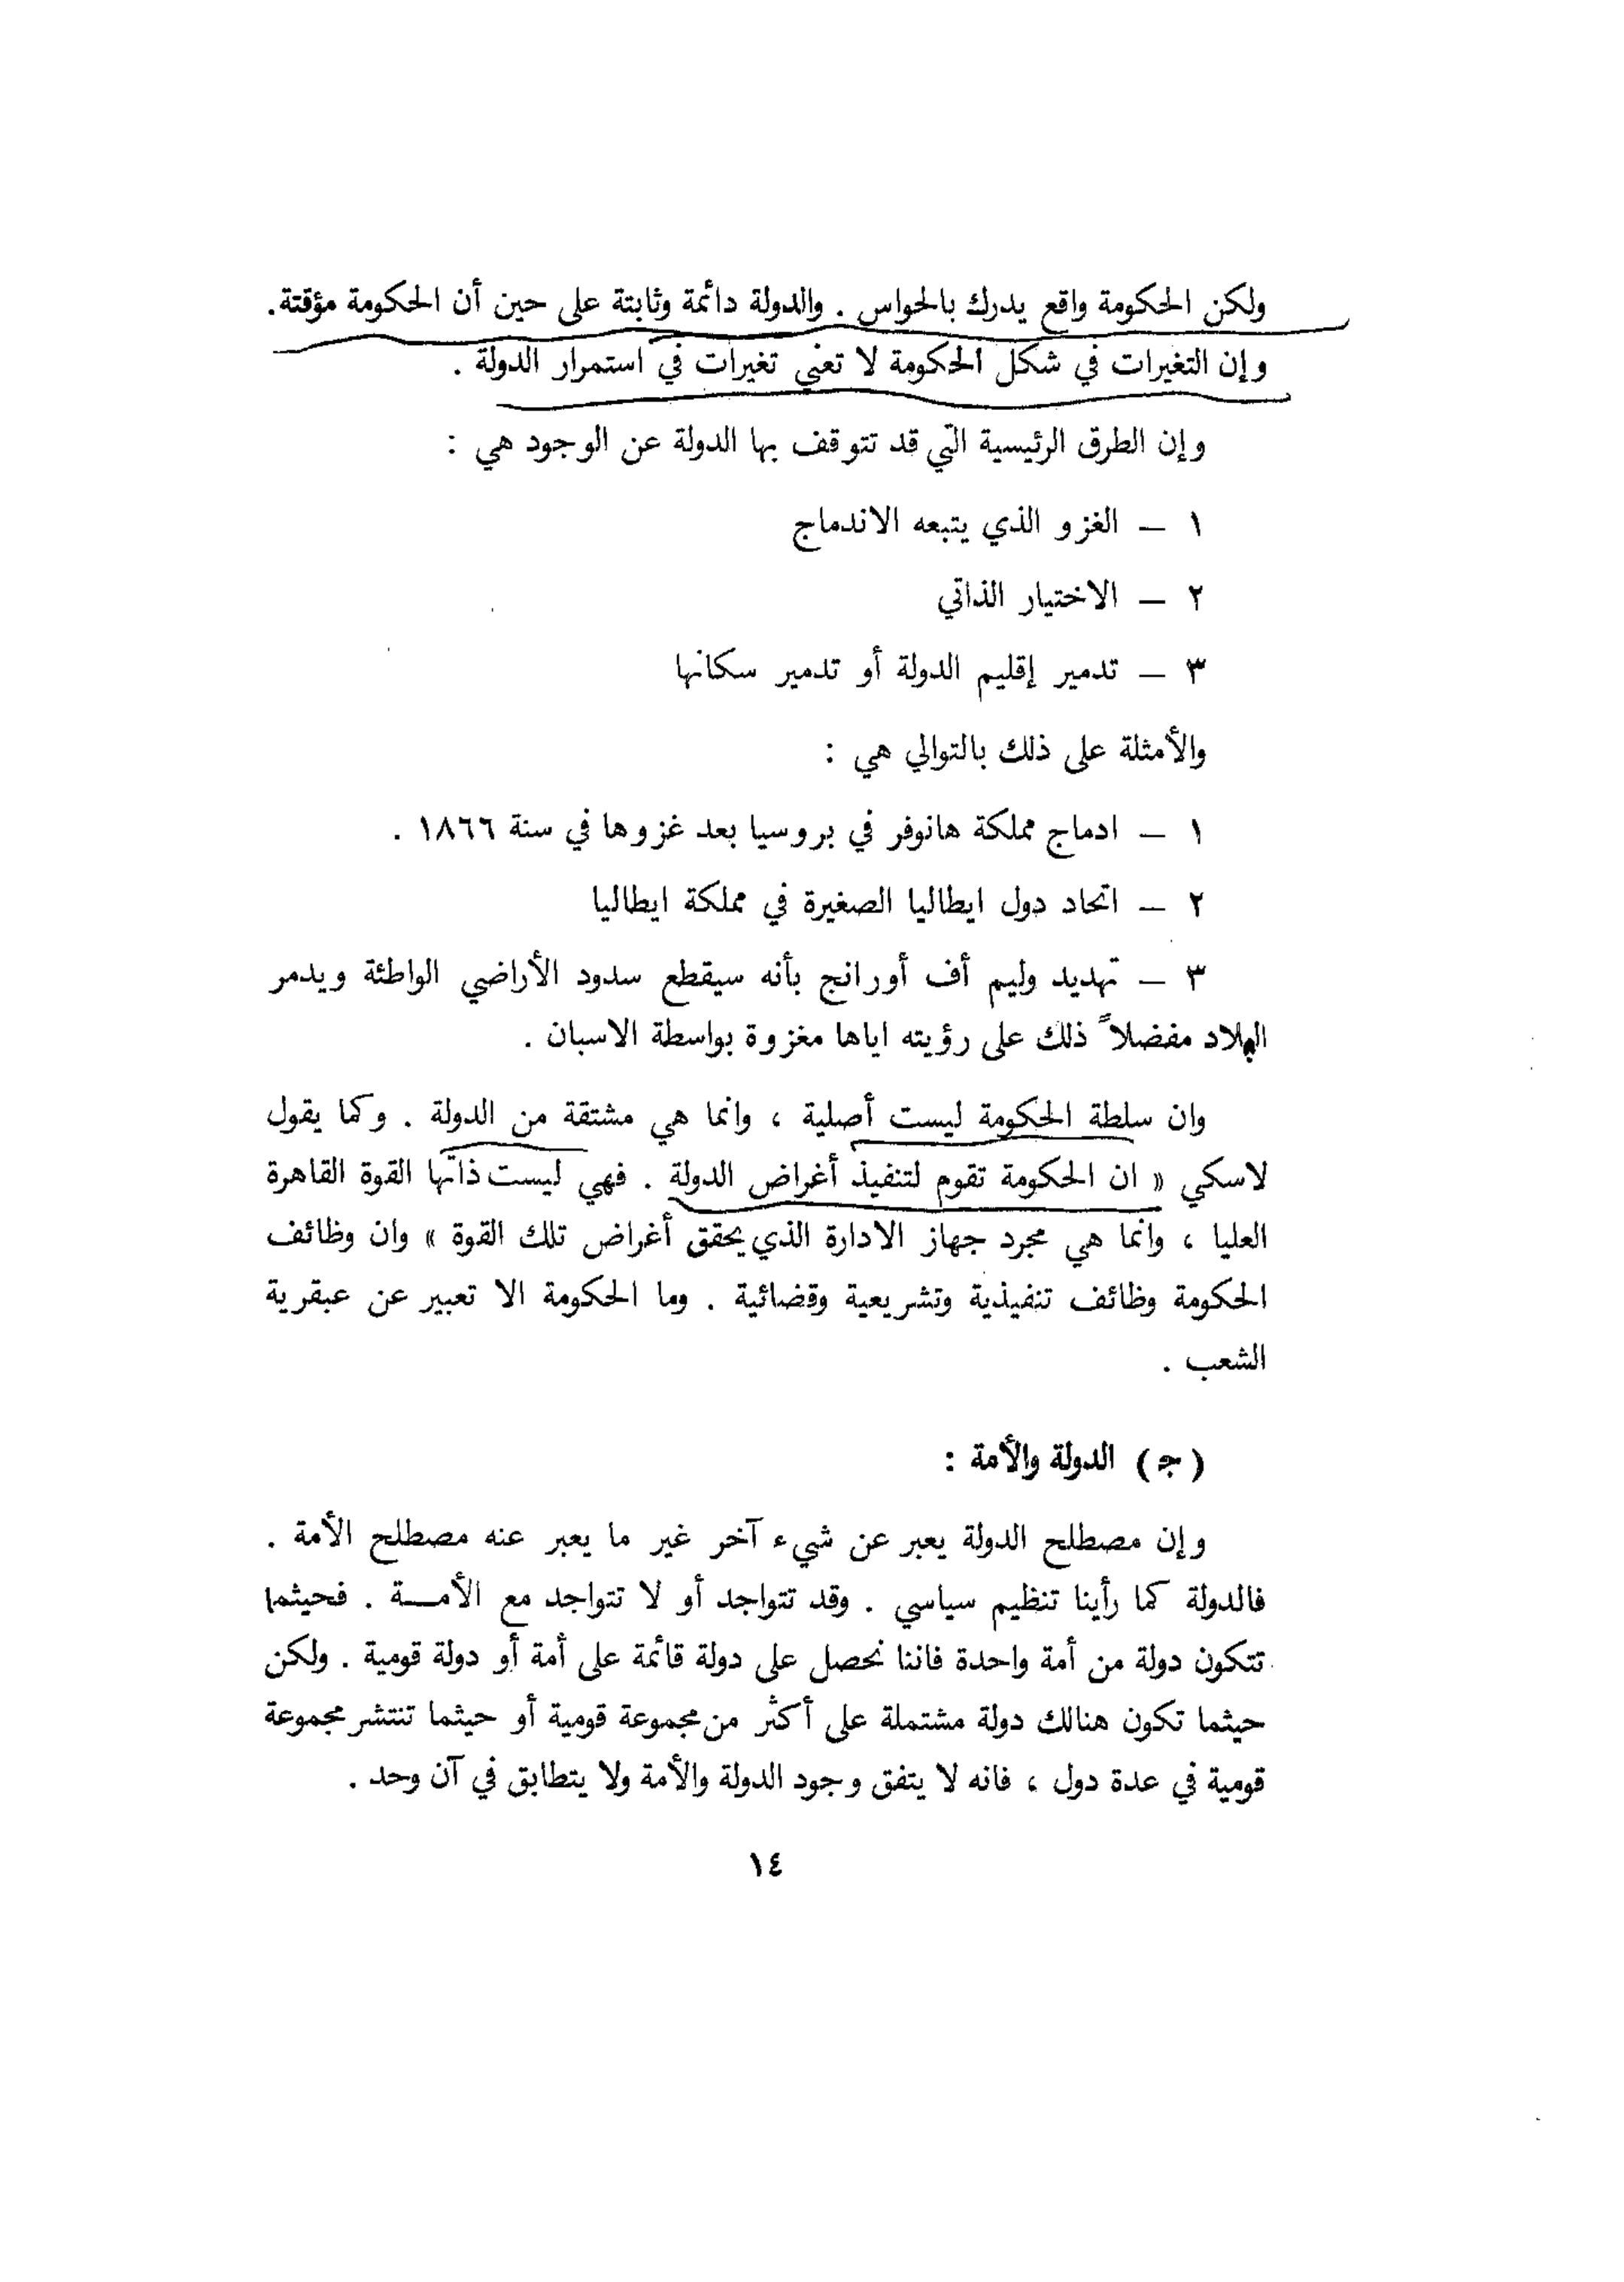 ولكن الحكومة واقع يدرك بالحواس . والدولة دائمة وثابتة على حين أن الحكومة مؤقتة.
وإن التغيرات في شكل الحكومة لا تعني تغيرات في استمرار الدولة .
وإن الطرق الرئيسية التي قد تتوقف بها الدولة عن الوجود هي :
١ – الغزو الذي يتبعه الاندماج
٢ – الاختيار الذاتي
٣ – تدمير إقليم الدولة أو تدمير سكانها
والأمثلة على ذلك بالتوالي هي :
١ – ادماج مملكة هانوفر في بروسيا بعد غزوها في سنة ١٨٦٦ .
٢ – اتحاد دول ايطاليا الصغيرة في مملكة ايطاليا
٣ – تهديد وليم أف أورانج بأنه سيقطع سدود الأراضي الواطئة ويدمر
البلاد مفضلاً ذلك على رؤيته اياها مغزوة بواسطة الاسبان .
وان سلطة الحكومة ليست أصلية ، وانما هي مشتقة من الدولة . وكما يقول
لاسكي « ان الحكومة تقوم لتنفيذ أغراض الدولة . فهي ليست ذاتها القوة القاهرة
العليا ، وانما هي مجرد جهاز الادارة الذي يحقق أغراض تلك القوة » وان وظائف
الحكومة وظائف تنفيذية وتشريعية وقضائية . وما الحكومة الا تعبير عن عبقرية
الشعب .
( ج ) الدولة والأمة :
وإن مصطلح الدولة يعبر عن شيء آخر غير ما يعبر عنه مصطلح الأمة .
فالدولة كما رأينا تنظيم سياسي . وقد تتواجد أو لا تتواجد مع الأمـــة . فحيثما
تتكون دولة من أمة واحدة فاننا نحصل على دولة قائمة على أمة أو دولة قومية . ولكن
حيثما تكون هنالك دولة مشتملة على أكثر من مجموعة قومية أو حيثما تنتشر مجموعة
قومية في عدة دول ، فانه لا يتفق وجود الدولة والأمة ولا يتطابق في آن وحد .
١٤